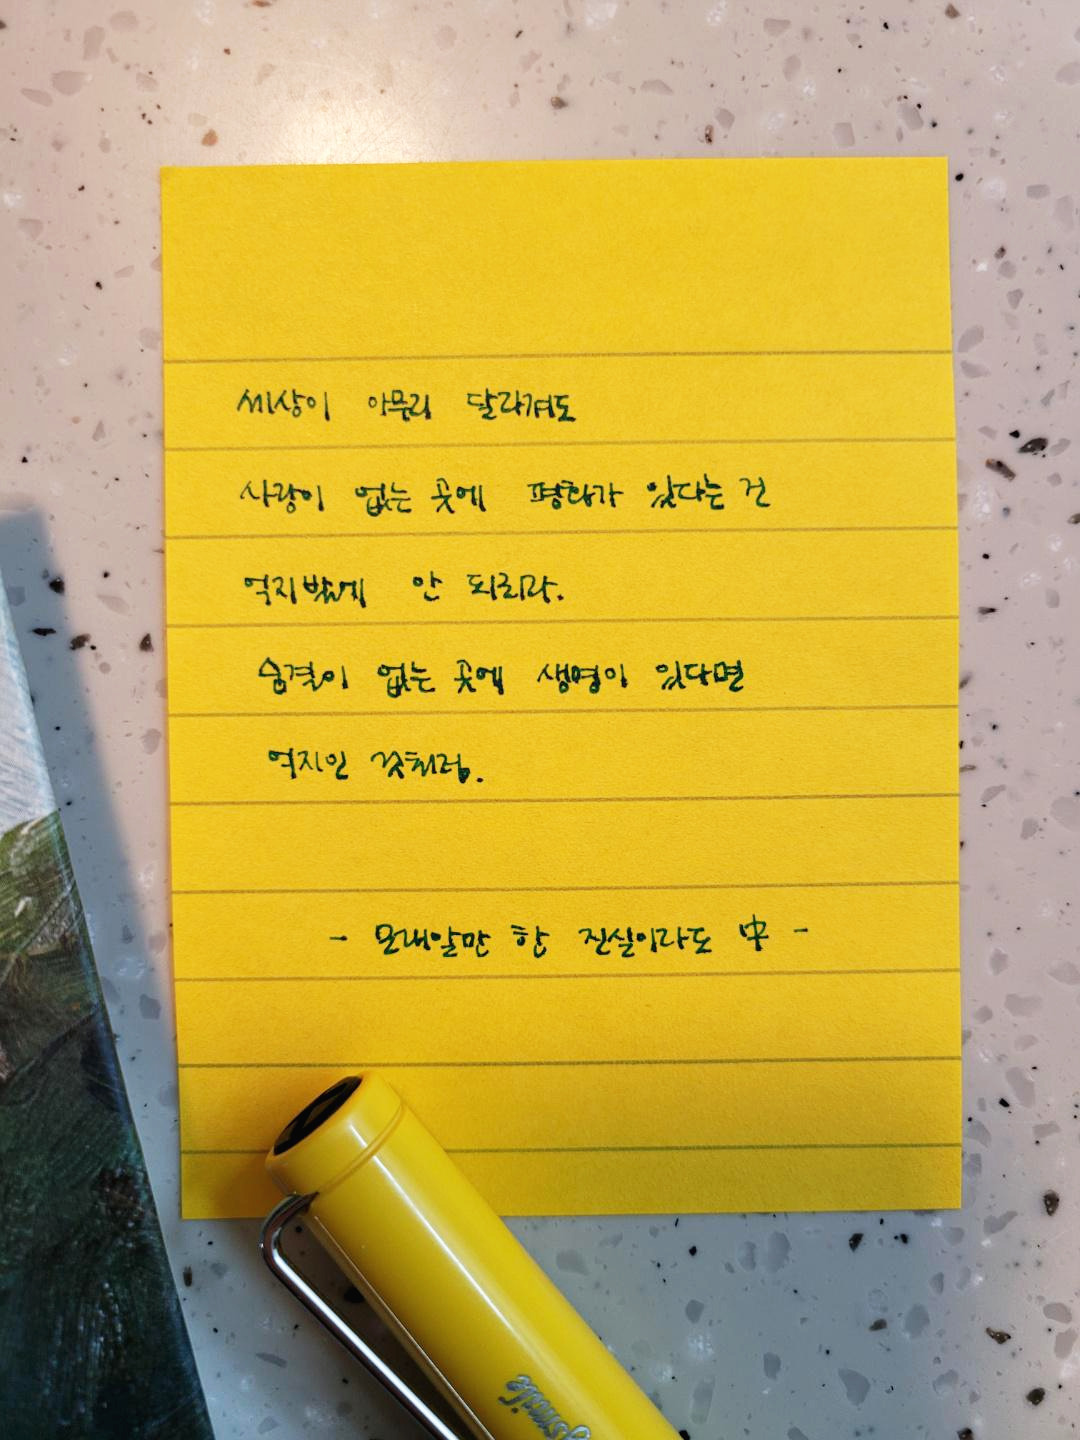 세상이 아무리 달라져도
사랑이 없는 곳에 평화가 있다는 건
억지밖에 안 되리라.
숨결이 없는 곳에 생명이 있다면
억지인 것처럼.
- 모래알만 한 진실이라도 中 -